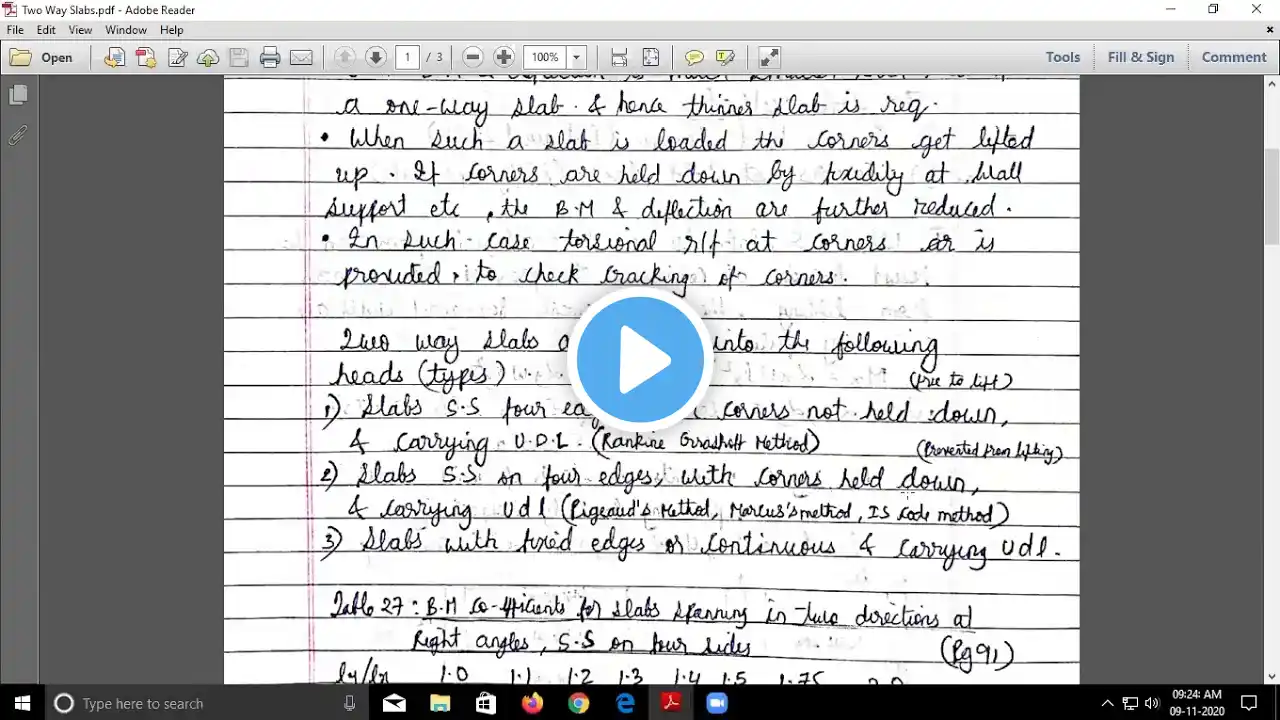 Two Way Slabs.pdf - Adobe Reader
File Edit View Window Help
Open 1 / 3 100% Tools Fill & Sign Comment
a one-way slab. & hence thinner slab is req.
• When such a slab is loaded the corners get lifted
up. If corners are held down by fixidity at wall
support etc, the B.M & deflection are further reduced.
• In such case torsional r/f at corners is
provided, to check cracking of corners.
Two way slabs into the following
heads (types)
(free to lift)
1) Slabs S.S four corners not held down,
& carrying U.D.L. (Rankine Grashoff Method)
(Prevented from lifting)
2) Slabs S.S on four edges, with corners held down,
& carrying Udl (Pigeaud's Method, Marcus's method, IS code method)
3) Slabs with fixed edges or continuous & carrying Udl.
Table 27: B.M Co-efficients for slabs spanning in two directions at
Right angles, S.S on four sides (Pg 91)
ly/lx 1.0 1.1 1.2 1.3 1.4 1.5 1.75
Type here to search
09:24: AM
09-11-2020